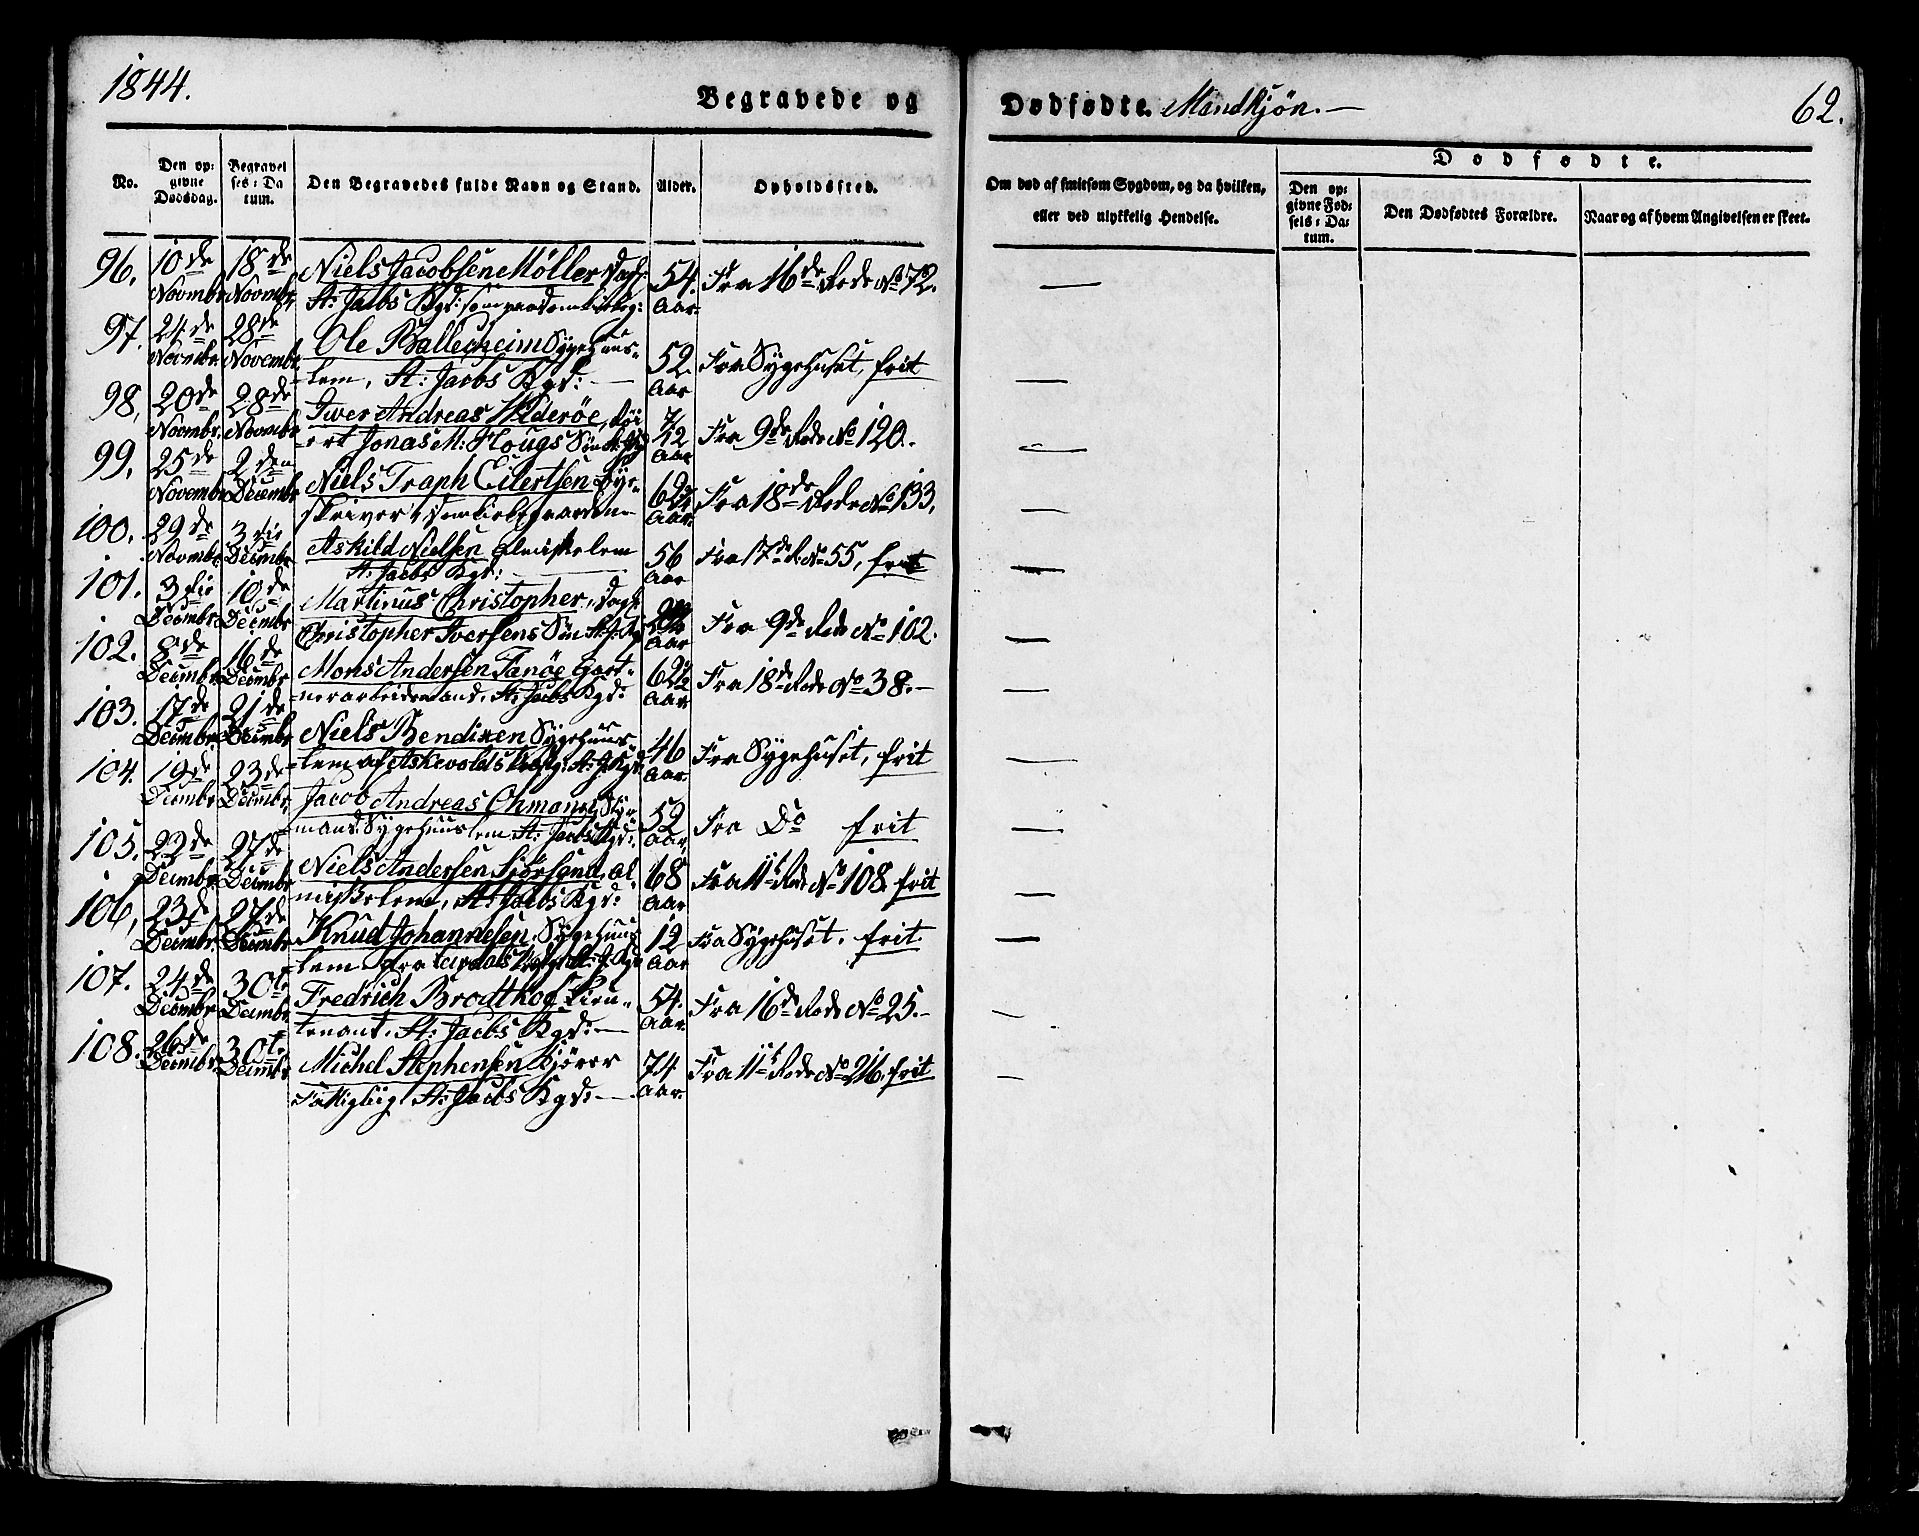 1844.
Begravede og
Dødfødte. Mandkjøn.
62.
No.
Den op-
givne
Dødsdag.
Begravel
ses-Da
tum.
Den Begravedes fulde Navn og Stand.
Alder.
Opholdssted.
Om død af smitsom Sygdom, og da hvilken,
eller ved ulykkelig Hendelse.
Dødfødte.
Den op-
givne Fød-
sels-Da-
tum.
Den Dødfødtes Forældre.
Naar og af hvem Angivelsen er skeet.
96. 10de Novmbr 18de Novmbr Niels Jacobsen Møller,
St: Jacbs Kgd: 54. Aar Fra 16de Rode No 72.
97. 24de Novmbr 28de Novembr Ole Ballecheim Sygehuus-
lem, St: Jacbs Kgd: 52 Aar Fra Sygehuset, frit
98, 20de Novmbr. 28de Novmbr Iver Andreas Wilderøe,
Jonas M: Hougs Søn 7/12 Aar Fra 9de Rode No 120.
99, 25de Novembr 2den Decembr Niels Traph Eilertsen Bye-
skriver, Fra 18de Rode No 133,
100. 29de Novmbr 3die Decmbr Askild Nielsen Almisselem
St: Jacbs Kgd: 56 Aar Fra 17de R: No 55, frit
101. 3die Decmbr. 10de Decmbr Martinus Christopher,
Christopher Iversens Søn Aar Fra 9de Rode No 102.
102. 8de Decmbr 16de Decmbr Mons Andersen Fanøe Gart-
nerarbeidsmand, St: Jacbs Kgd: 62 1/2 Aar Fra 18de Rode No 38.
103. 17de Decmbr 21de Decmbr Niels Bendixen Sygehuus-
lem af Askevolds Præstg: St: J: Kgd 46 Aar Fra Sygehuset, frit
104. 19de Decmbr 23de Decmbr Jacob Andreas Ohmann,
mand Sygehuuslem St: Jacbs Kgd: 52 Aar, Fra Do frit
105. 22de Decmbr 27de Decmbr Niels Andersen Siørsand, Al-
misselem, St: Jacbs Kgd: 68 Aar Fra 11te Rode No 108 frit
106, 23de Decmbr. 27de Decmbr Knud Johannesen, Sygehuus
lem fra Leirdals Præstg: St: J: Kgd 12 Aar Fra Sygehuset. frit.
107. 24de Decmbr 30te Decmbr Fredrich Brodtkof Lieu-
tenant. St: Jacbs Kgd: 54. Aar Fra 16de Rode No 25.
108. 26de Decmbr. 30te Decmbr Michel Stephensen Kjører
Fattiglig. St: Jacbs Kgd: 74 Aar. Fra 11te Rode No 216. frit